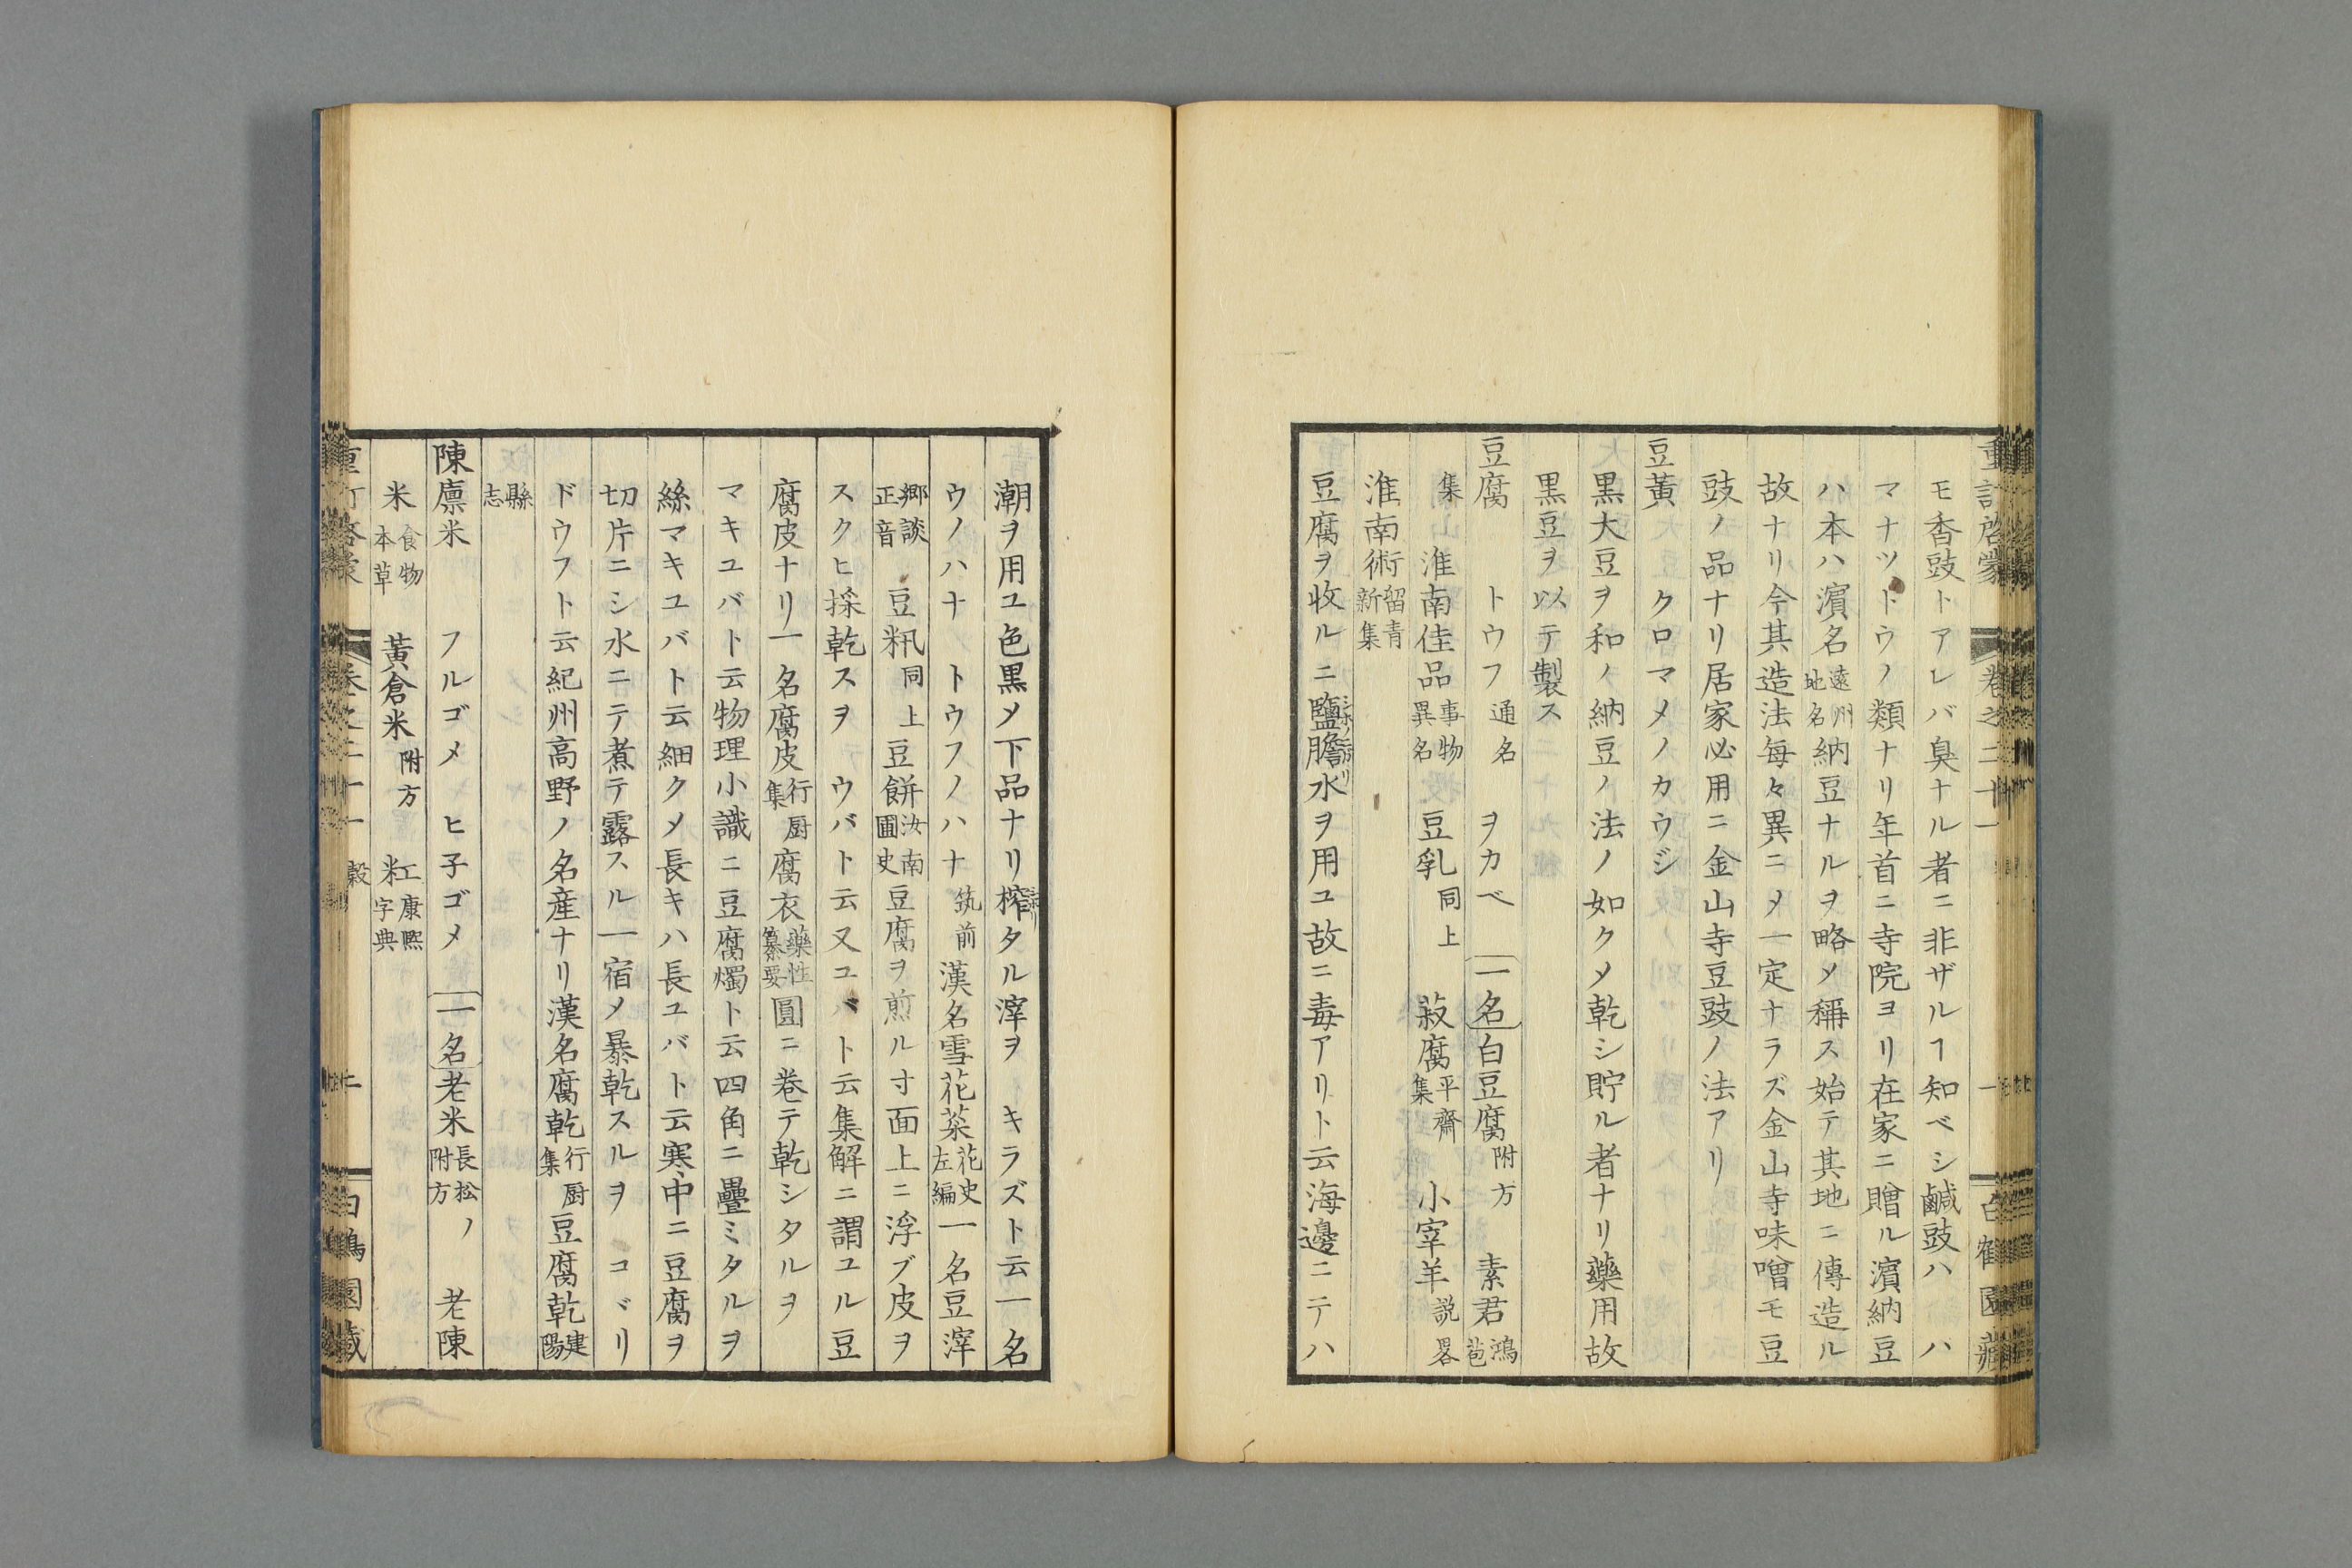 重訂啓蒙 卷之二十一 一
モ香豉トアレバ臭ナル者ニ非ザルヿ知ベシ鹹豉ハハ
マナツトウノ類ナリ年首ニ寺院ヨリ在家ニ贈ル濵納豆
ハ本ハ濵名遠州地名納豆ナルヲ略メ稱ス始テ其地ニ傳造ル
故ナリ今其造法毎々異ニメ一定ナラズ金山寺味噌モ豆
豉ノ品ナリ居家必用ニ金山寺豆豉ノ法アリ
豆黃 クロマメノカウジ
黒大豆ヲ和ノ納豆ノ法ノ如クメ乾シ貯ル者ナリ藥用故
黒豆ヲ以テ製ス
豆腐 トウフ通名 ヲカベ 一名白豆腐附方 素君鴻苞
集 淮南佳品事物異名 豆乳同上 菽腐平齋集 小宰羊説畧
淮南術留青新集
豆腐ヲ收ルニ鹽膽水ヲ用ユ故ニ毒アリト云海邊ニテハ
潮ヲ用ユ色黒メ下品ナリ榨タル滓ヲ キラズト云一名
ウノハナ トウフノハナ筑前 漢名雪花菜花史左編一名豆滓
郷談正音 豆籸同上 豆餅汝南圃史豆腐ヲ煎ル寸面上ニ浮ブ皮ヲ
スクヒ採乾スヲ ウバト云又ユバト云集解ニ謂ユル豆
腐皮ナリ一名腐皮行厨集 腐衣藥性纂要圓ニ巻テ乾シタルヲ
マキユバト云物理小識ニ豆腐燭ト云四角ニ疊ミタルヲ
絲マキユバト云細クメ長キハ長ユバト云寒中ニ豆腐ヲ
切片ニシ水ニテ煮テ露スル一宿メ暴乾スルヲ コヾリ
ドウフト云紀州高野ノ名産ナリ漢名腐乾行厨集 豆腐乾建陽
縣志
陳廩米 フルゴメ ヒ子ゴメ 一名老米長松附方ノ 老陳
米食物本草 黃倉米附方 粠康熈字典
穀 二